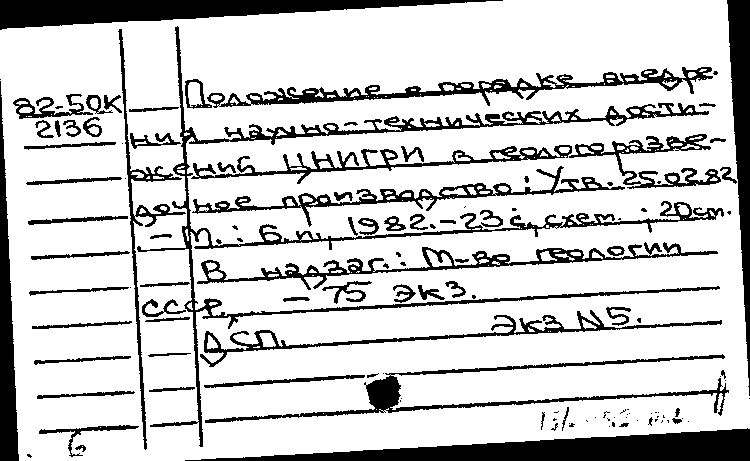 82-50К
2136
Положение о порядке внедре-
ния научно-технических дости-
жений ЦНИГРИ в геологоразве-
дочное производство: Утв. 25.02.82
. - М.: Б.и., 1982. - 23 с., схем. ; 20 см.
В надзаг.: М-во геологии
СССР. - 75 экз.
ДСП. Экз N5.
6